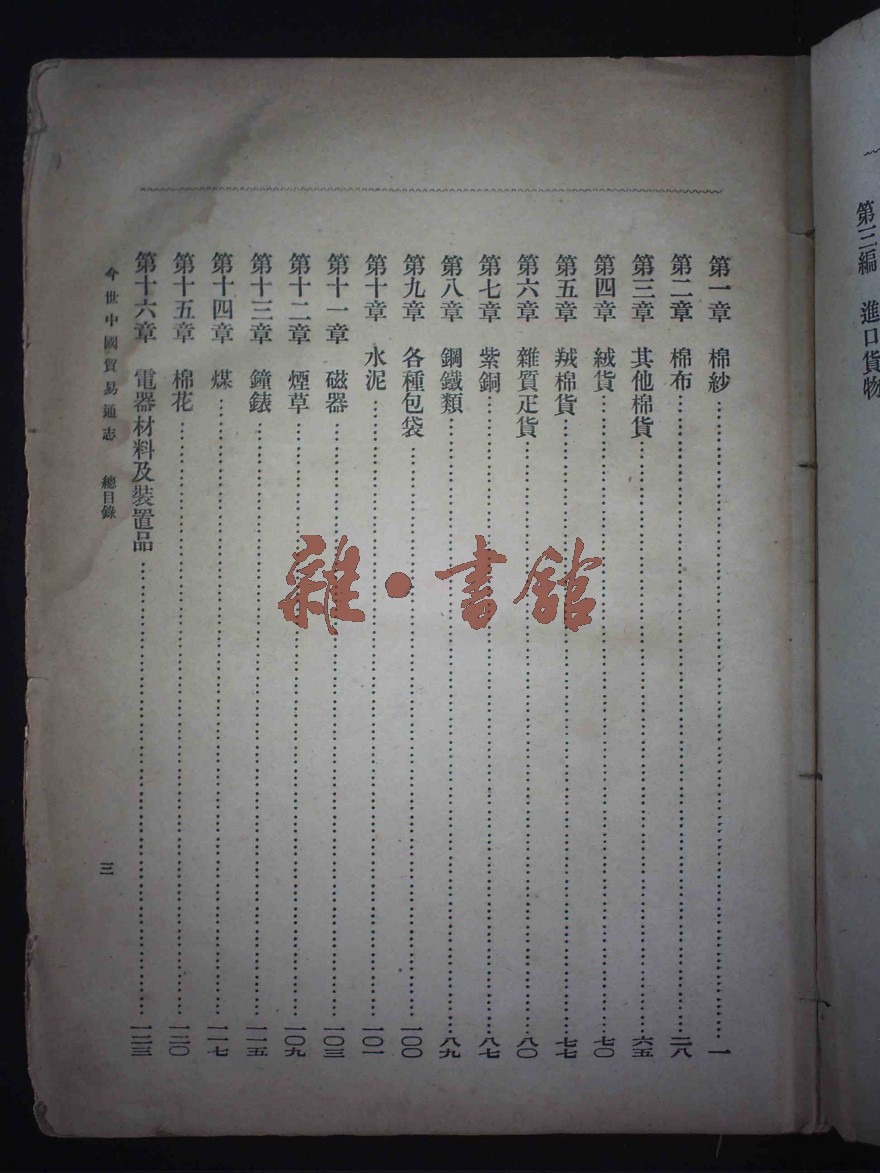 第三編　進口貨物
第一章　棉紗…………一
第二章　棉布…………二八
第三章　其他棉貨…………六五
第四章　絨貨…………七〇
第五章　羢棉貨…………七七
第六章　雜質疋貨…………八〇
第七章　紫銅…………八七
第八章　鋼鐵類…………八九
第九章　各種包袋…………一〇〇
第十章　水泥…………一〇一
第十一章　磁器…………一〇三
第十二章　煙草…………一〇九
第十三章　鐘錶…………一一五
第十四章　煤…………一一七
第十五章　棉花…………一二〇
第十六章　電器材料及裝置品…………一二三
今世中國貿易通志　總目錄　三
雜·書館